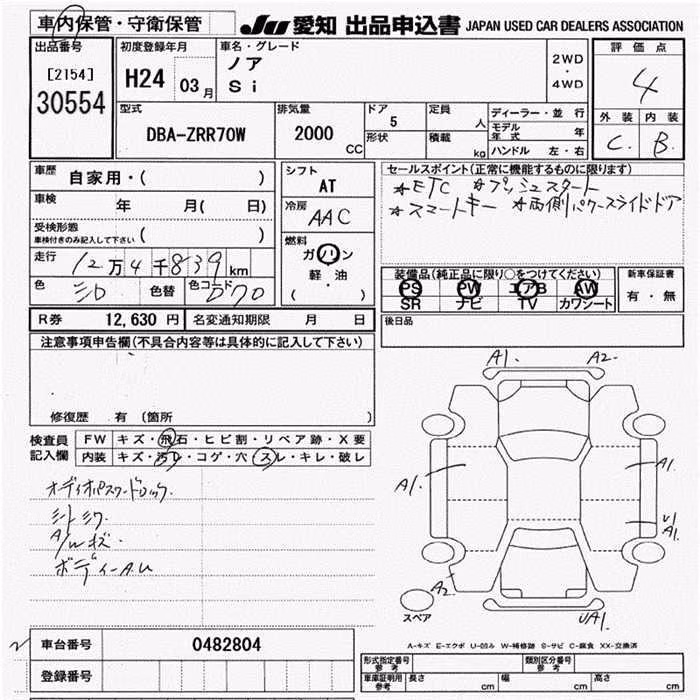 車内保管・守衛保管
JU 愛知 出品申込書 JAPAN USED CAR DEALERS ASSOCIATION
出品番号
[2154]
30554
初度登録年月
H24 03 月
車名・グレード
ノア
Si
2WD
・
4WD
評価点
4
外装 内装
C. B.
型式
DBA-ZRR70W
排気量
2000 CC
ドア
5
形状
定員
人
積載
kg
ディーラー・並行
モデル年式 年
ハンドル 左・右
車歴
自家用・( )
車検 年 月( 日)
受検形態
車検付きのみ記入して下さい ( )
走行 12万4千839 km
色 シロ 色替 色コード 070
シフト
AT
冷房
AAC
燃料
ガソリン
軽・油
( )
セールスポイント(正常に機能するものに限ります)
*ETC *プッシュスタート
*スマートキー *両側パワースライドドア
装備品(純正品に限り○をつけてください)
PS PW エアB AW
SR ナビ TV カワシート
新車保証書
有・無
R券 12,630 円 名変通知期限 月 日
後日品
注意事項申告欄(不具合内容等は具体的に記入して下さい)
修復歴 有 (箇所 )
検査員
記入欄
FW キズ・飛石・ヒビ割・リペア跡・X要
内装 キズ・汚レ・コゲ・穴・スレ・キレ・破レ
オーディオパスワードロック.
シートシワ.
A/Wキズ.
ボディーA.U
A1. A2.
A1. A1.
U1
A1.
A2 UA1.
スペア
A-キズ E-エクボ U-凹み W-補修跡 S-サビ C-腐食 XX-交換済
車台番号 0482804
登録番号
形式指定番号 参考 類別区分番号 参考
車庫証明用 参考 長さ cm 幅 cm 高さ cm